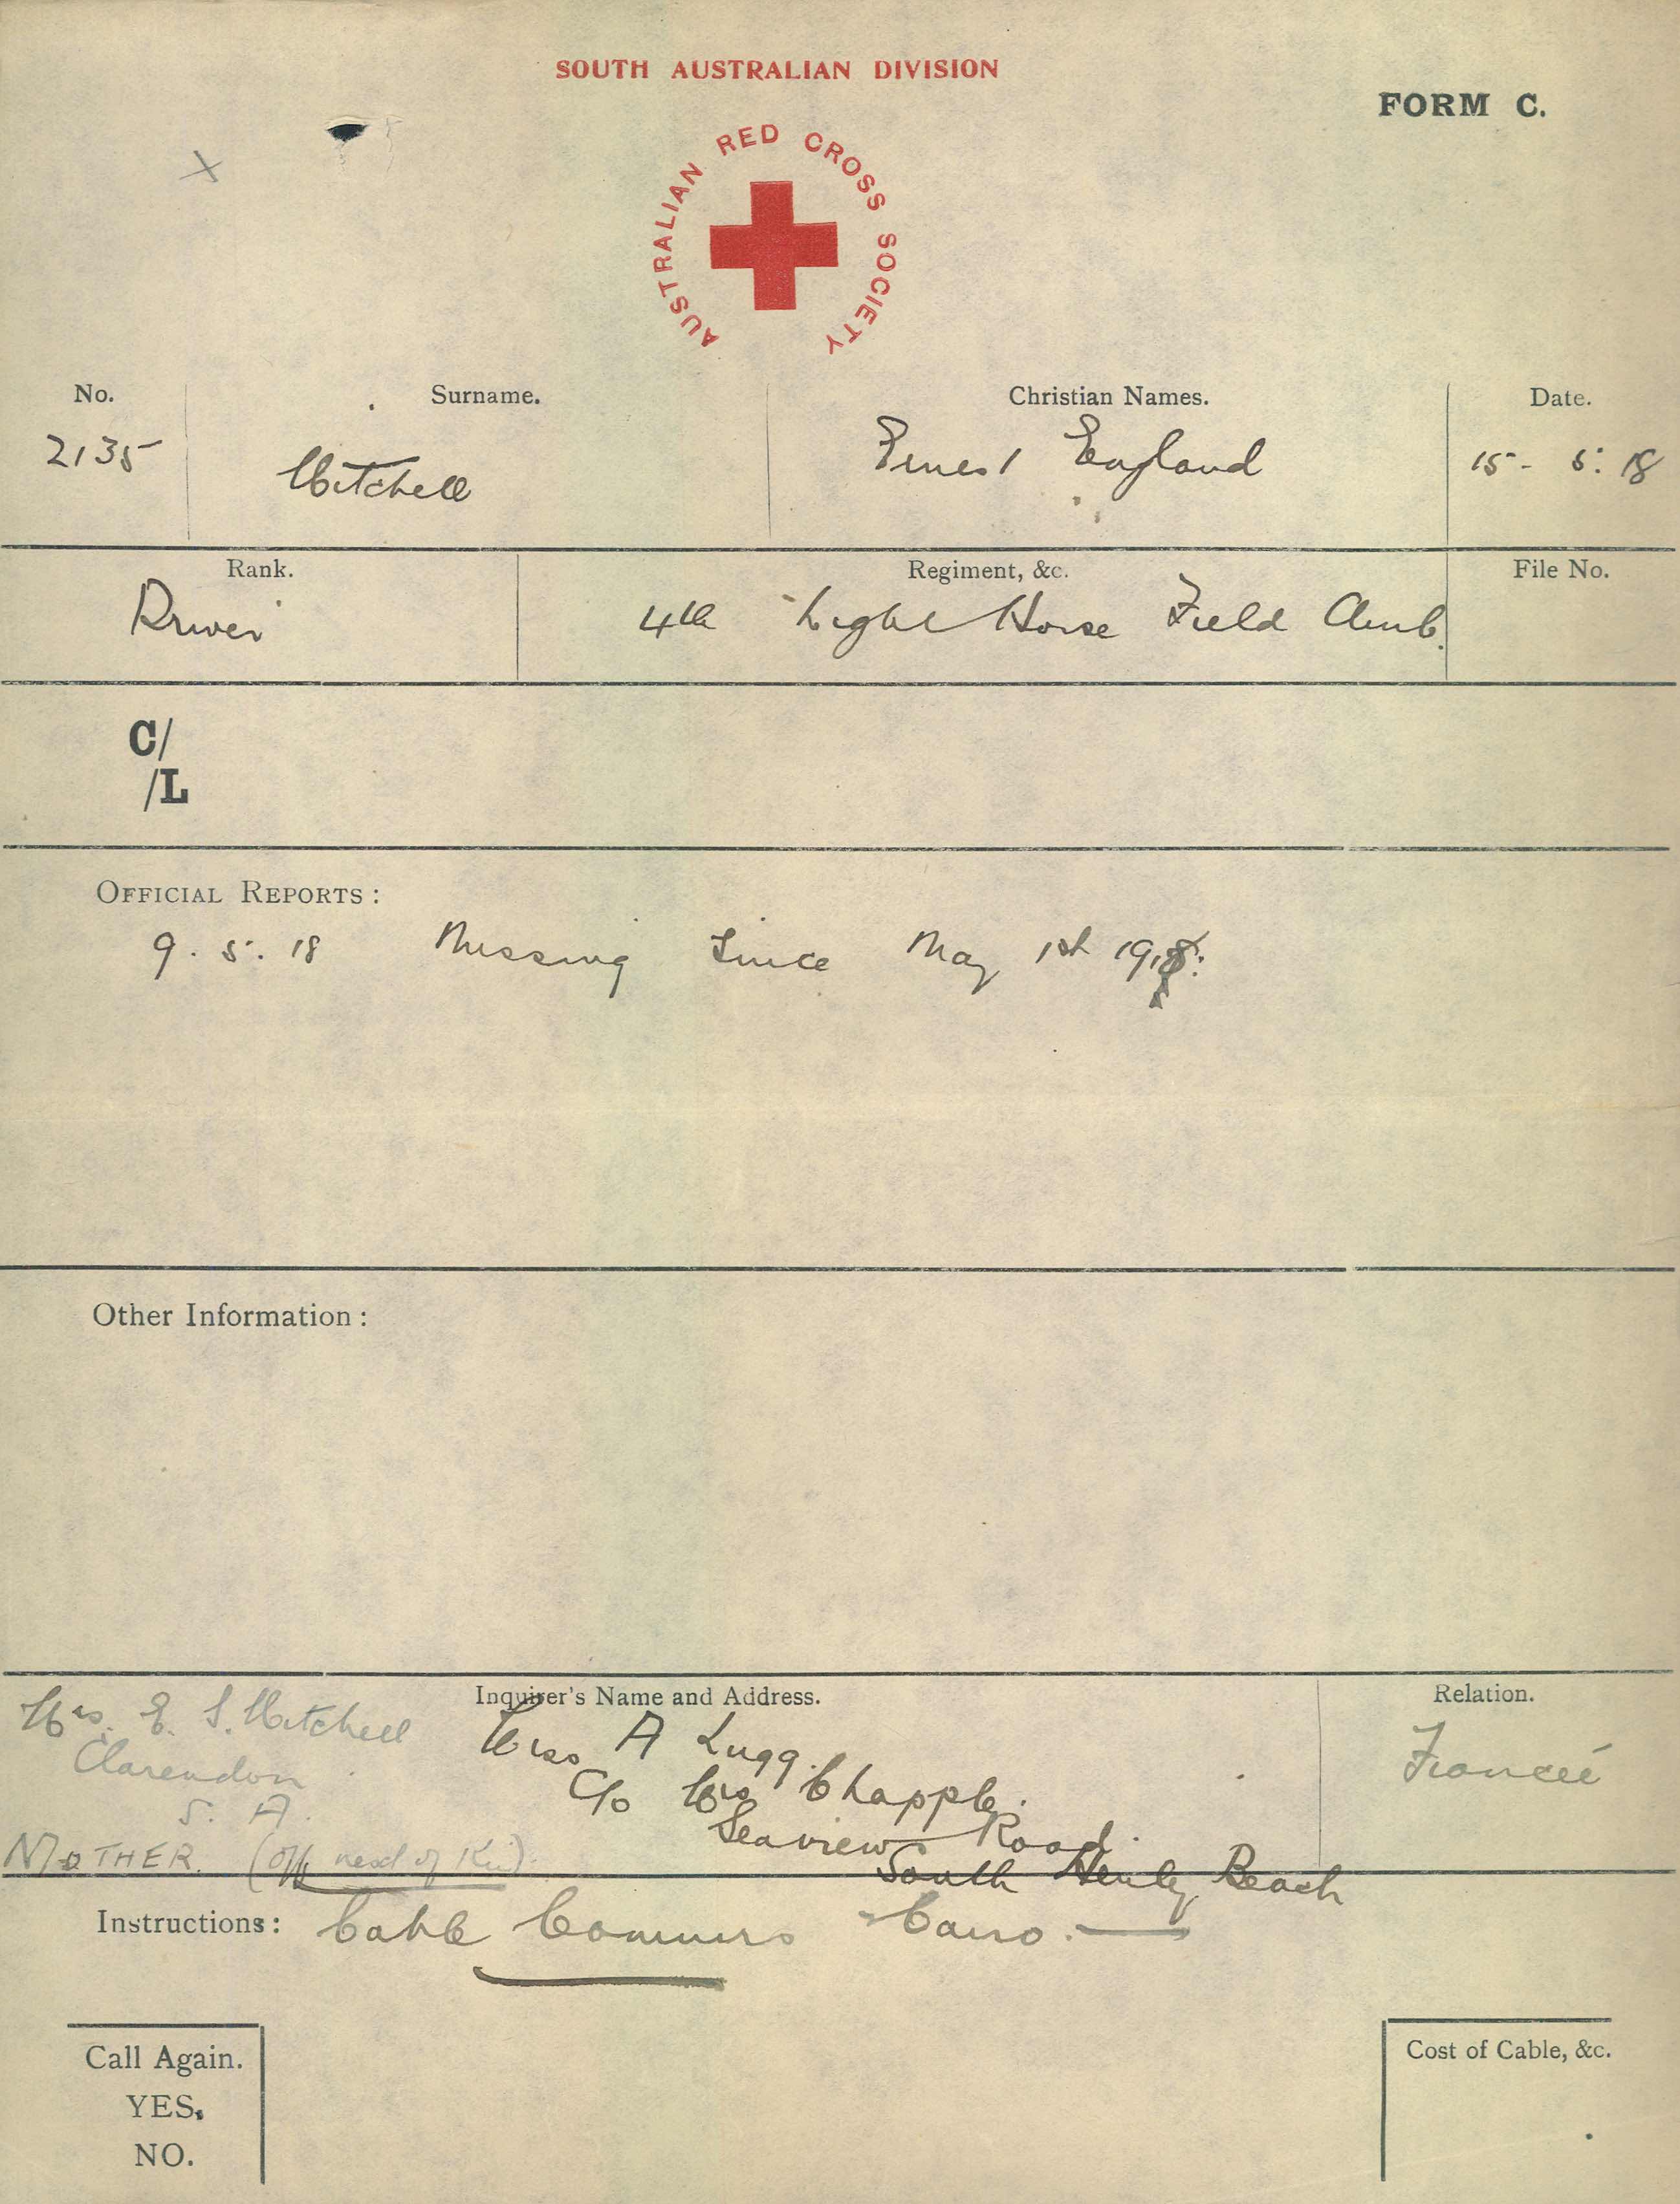 SOUTH AUSTRALIAN DIVISION
FORM C.
X
AUSTRALIAN RED CROSS SOCIETY
No. Surname. Christian Names. Date.
2135 Mitchell Ernest England 15-5:18
Rank. Regiment, &c. File No.
Driver 4th Light Horse Field Amb.
C/
/L
OFFICIAL REPORTS:
9.5.18 Missing since May 1st 1918:
Other Information:
Inquirer's Name and Address. Relation.
Mrs. E. S. Mitchell
Clarendon
S. A.
MOTHER. (Off next of Kin).
Miss A Lugg.
C/o Mrs Chapple.
Seaview Road.
South Henley Beach
Fianceé
Instructions: Cable Commrs Cairo.
Call Again.
YES.
NO.
Cost of Cable, &c.